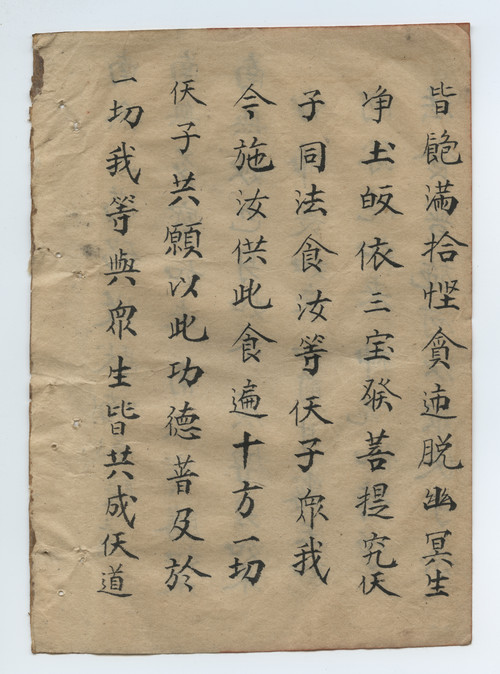 皆飽滿拾慳貪速脱幽冥生
净圡皈依三宝發菩提究仸
子同法食汝等仸子眾我
今施汝供此食遍十方一切
仸子共願以此功德普及於
一切我等與眾生皆共成仸道